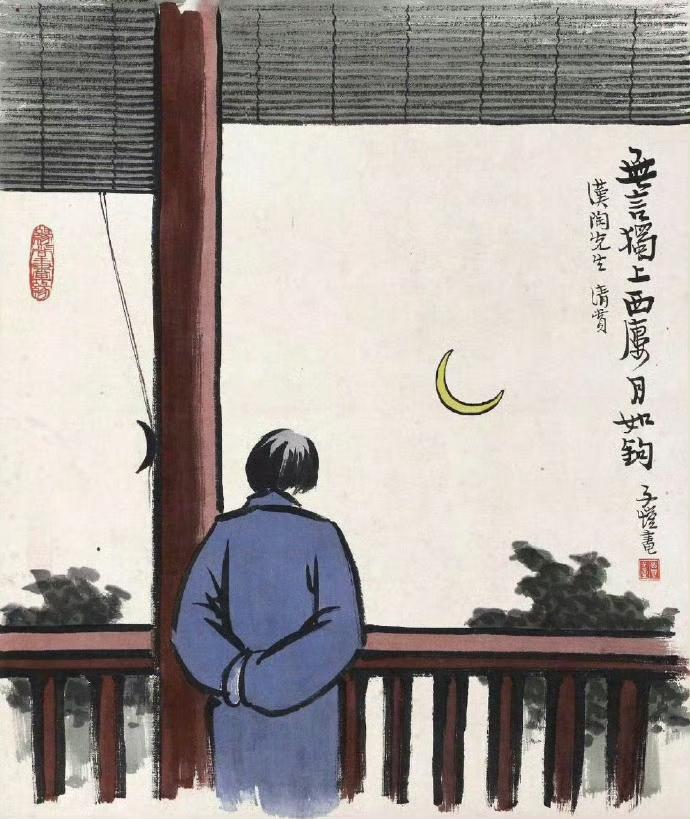 無言獨上西廔月如鉤
漢陶先生 清賞
子愷畫